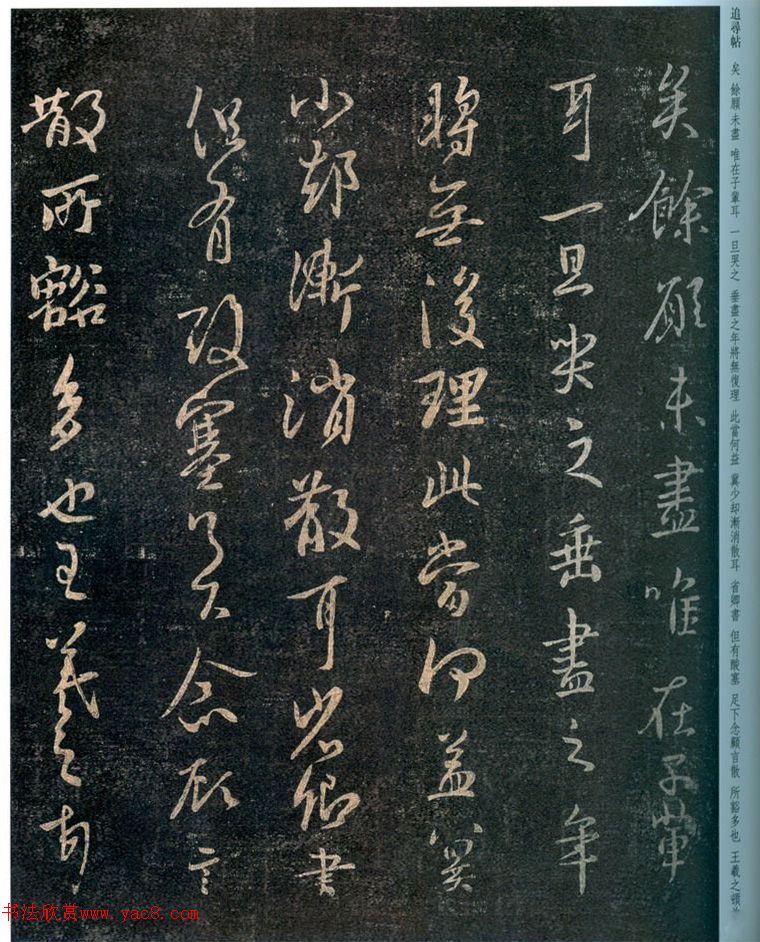 追尋帖 矣 餘願未盡 唯在子輩耳 一旦哭之 垂盡之年將無復理 此當何益 冀少却漸消散耳 省卿書 但有酸塞 足下念顧言散 所豁多也 王羲之頓首
矣餘願未盡唯在子輩
耳一旦哭之垂盡之年
將無復理此當何益冀
小却漸消散耳省卿書
但有酸塞足下念顧言
散所豁多也王羲之頓首
书法欣赏www.yac8.com